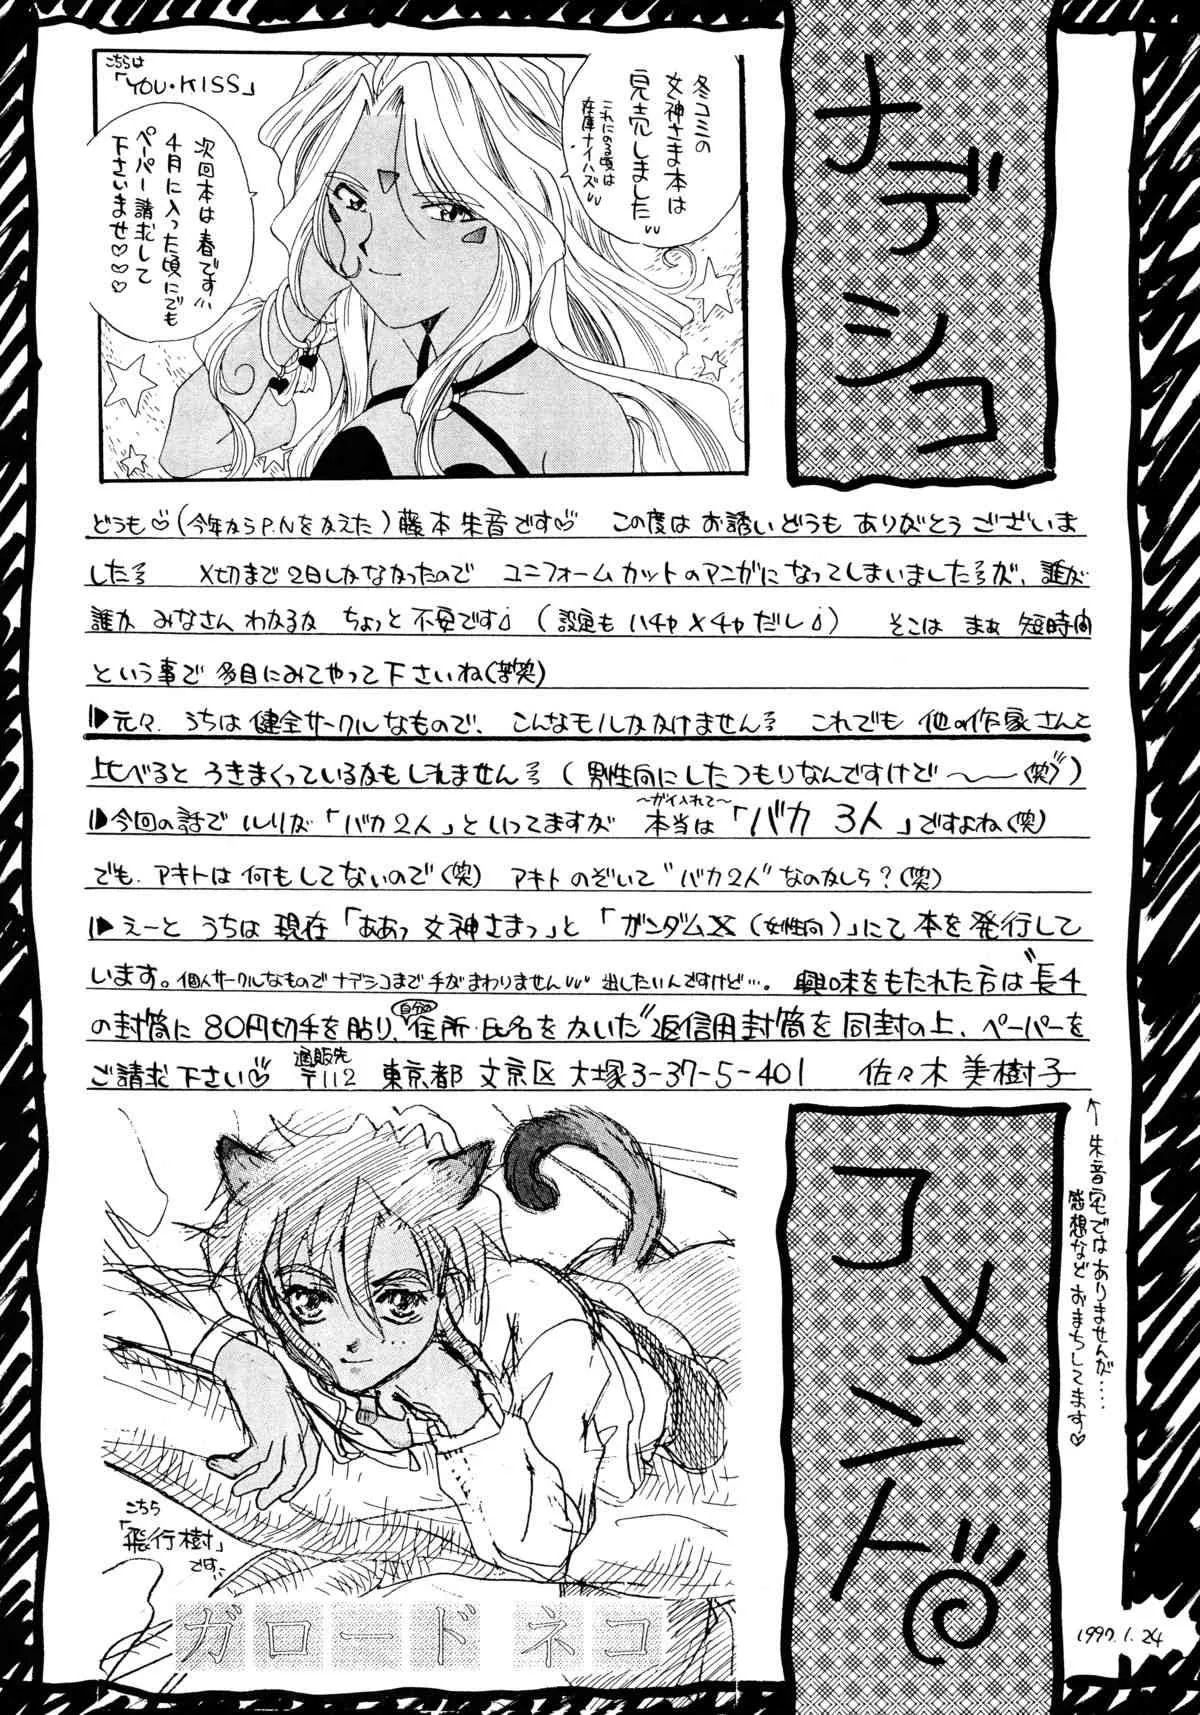 ナデシコ
冬コミの
女神さま本は
完売しました
これにのる頃は
在庫ナイハズ
こちらは
「YOU・KISS」
次回本は春です…
4月に入った頃にでも
ペーパー請求して
下さいませ♡♡♡
どうも♡(今年からP.Nをかえた)藤本朱音です♡ この度はお誘いどうもありがとうございま
した 〆切まで2日しかなかったので ユニフォームカットのマンガになってしまいましたが、誰が
誰か みなさん わかるか ちょっと不安です (設定もハチャメチャだし) そこは まぁ 短時間
という事で 多目にみてやって下さいね(苦笑)
▶元々、うちは健全サークルなもので、こんなモノしかかけません これでも 他の作家さんと
比べると うきまくっているかもしれません (男性向にしたつもりなんですけど〜〜(笑))
〜ガイ入れて〜
▶今回の話で ルリが「バカ2人」といってますが 本当は「バカ 3人」ですよね(笑)
でも、アキトは何もしてないので(笑) アキトのぞいて“バカ2人”なのかしら?(笑)
▶えーと うちは現在「ああっ女神さまっ」と「ガンダムX(女性向)」にて本を発行して
います。個人サークルなものでナデシコまで手がまわりません 出したいんですけど…。興味をもたれた方は“長4
の封筒に80円切手を貼り、自分の住所・氏名をかいた”返信用封筒を同封の上、ペーパーを
ご請求下さい♡ 通販先 〒112 東京都文京区大塚3-37-5-401 佐々木美樹子
↑朱音宅ではありませんが…
感想などおまちしてます♡
コメント
こちら
「飛行樹」
です…
ガロードネコ
1997.1.24